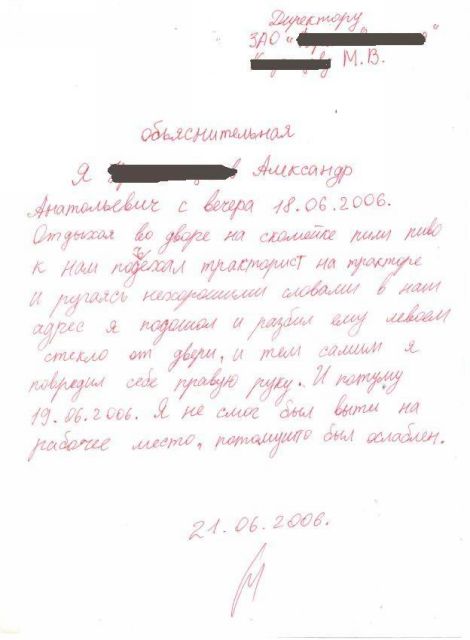 Директору
ЗАО "
М.В.
объяснительная
Я Александр
Анатольевич с вечера 18.06.2006.
Отдыхая во дворе на скомейке пили пиво
к нам подъехал тракторист на тракторе
и ругаясь нехорошими словами в наш
адрес я подошол и разбил ему левоем
стекло от двери, и тем самим я
повредил себе правую руку. И потуму
19.06.2006. Я не смог был выти на
рабочее место, потомушто был ослаблен.
21.06.2006.